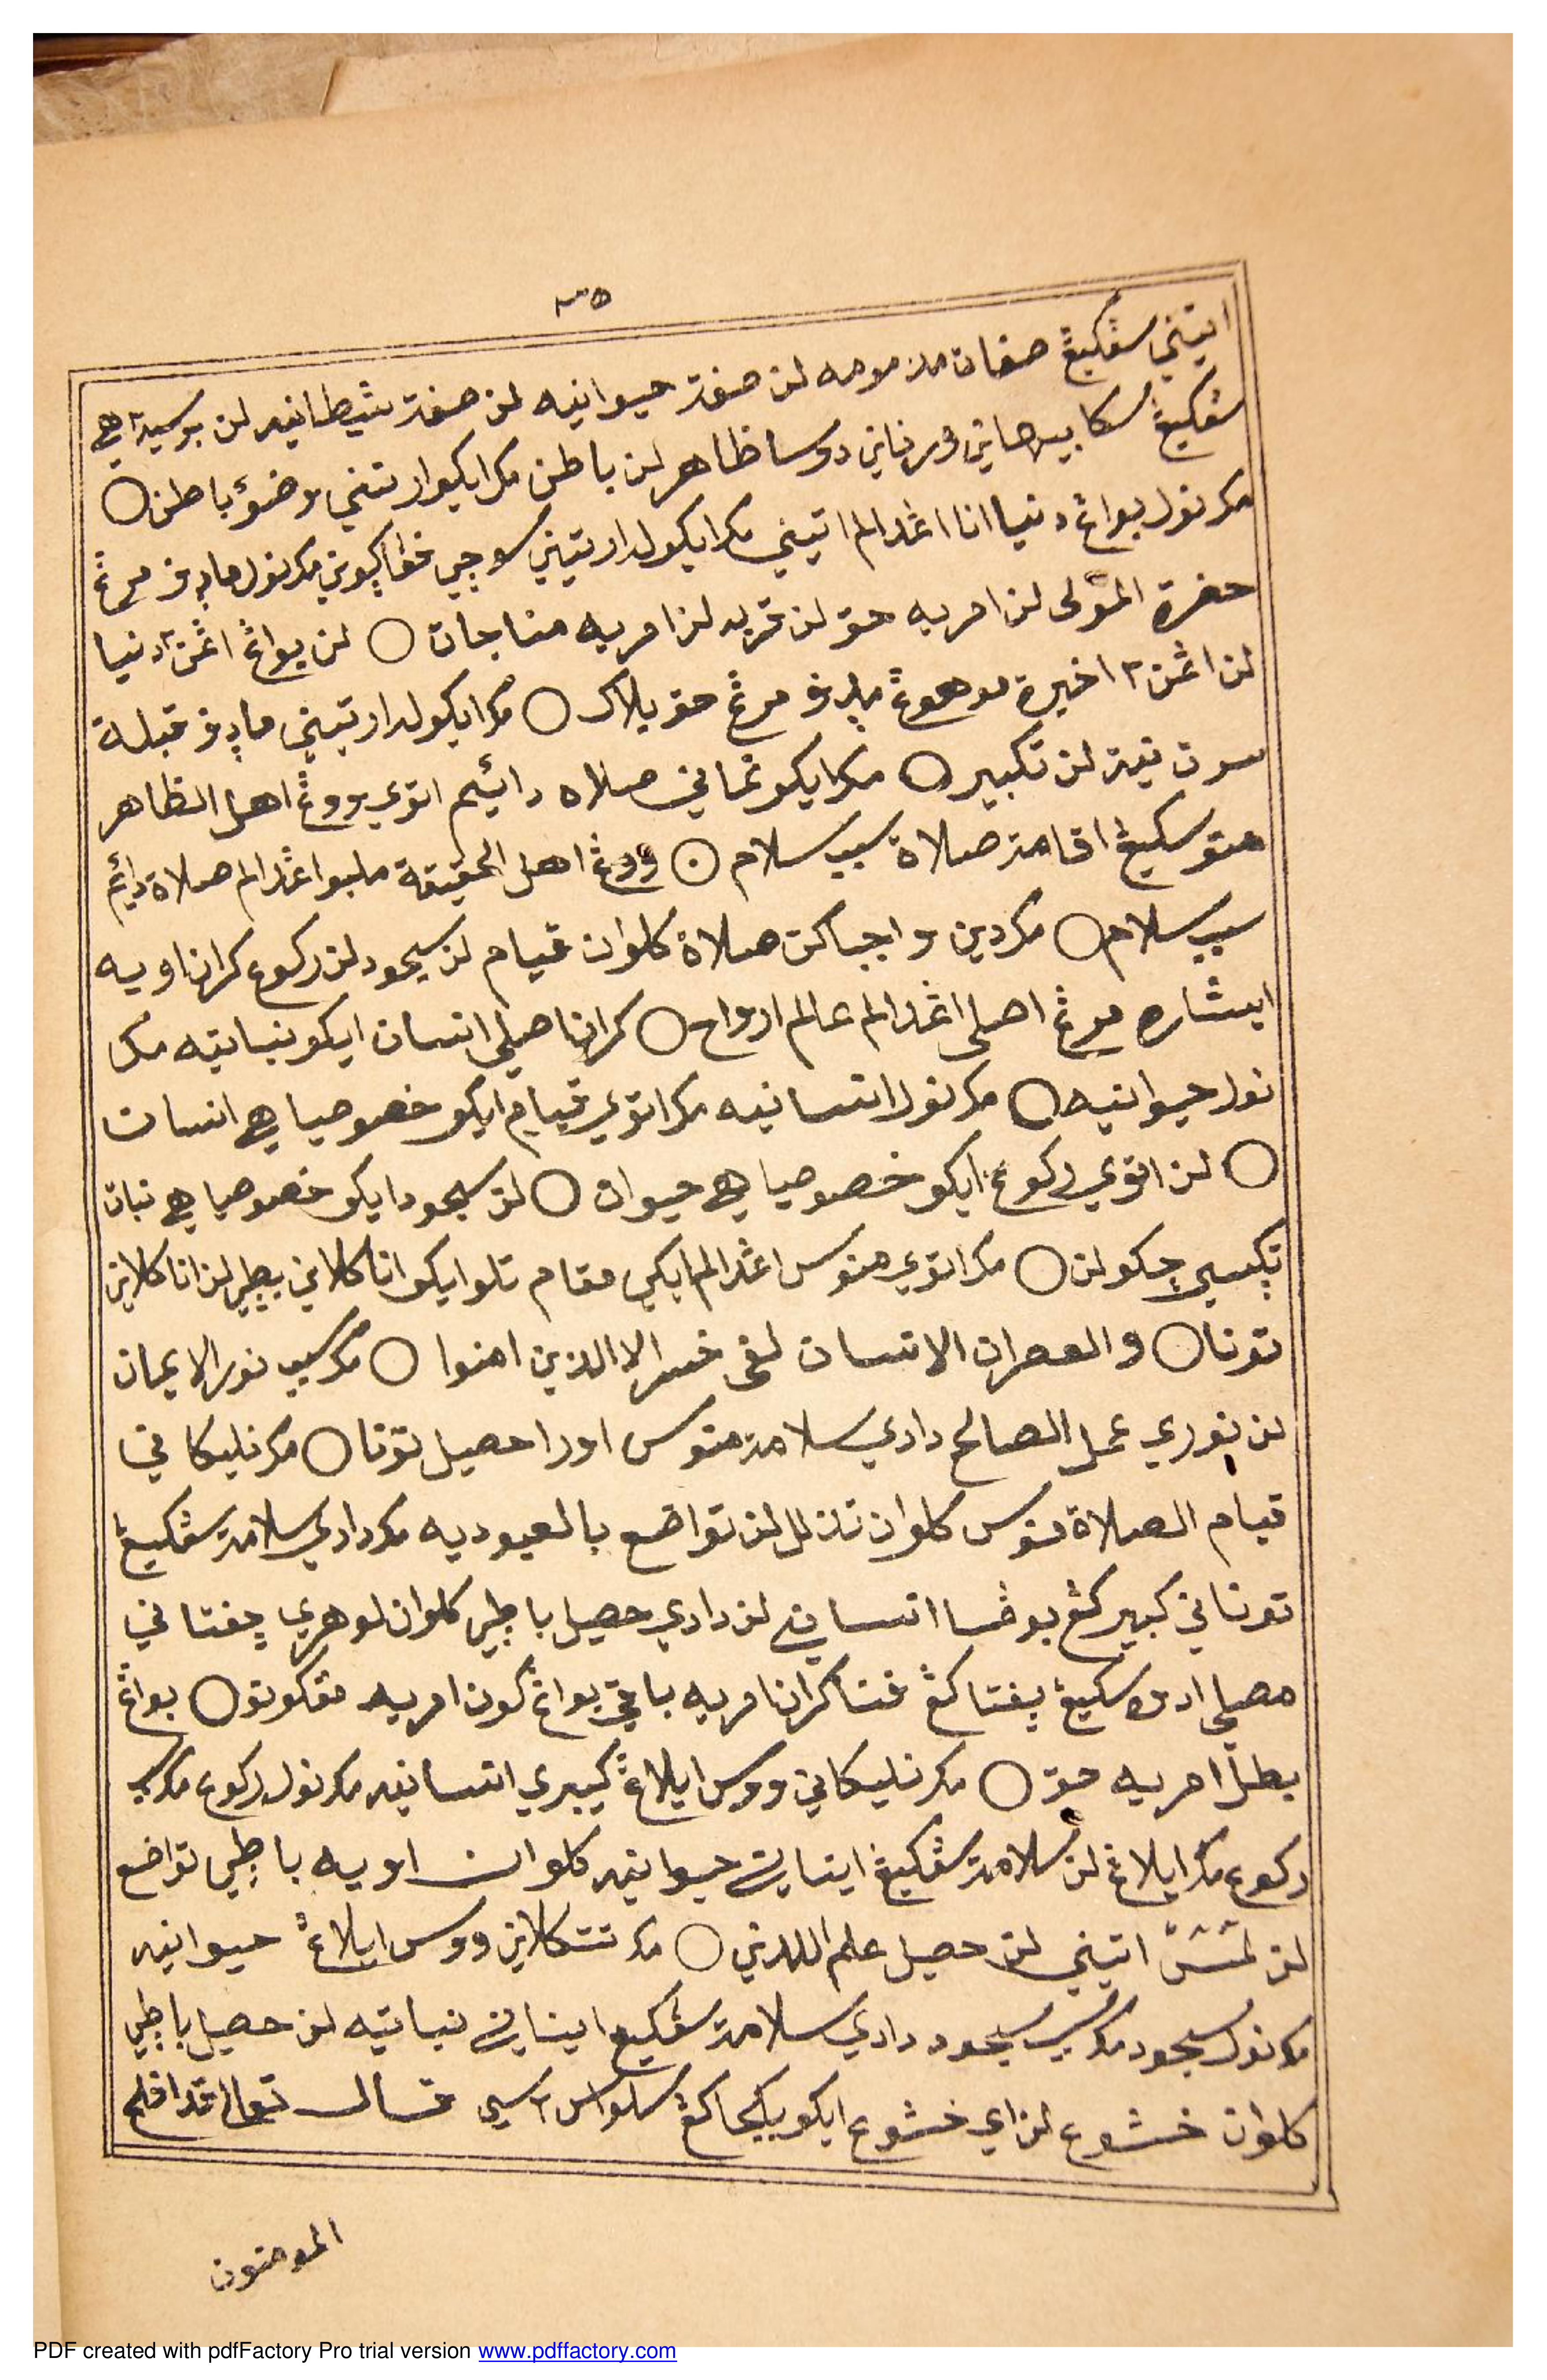 ٣٥
اتيني سڤكيڠ صفات مذمومه لن صفة حيوانيه لن صفة شيطانيه لن برسيهاهي
سڤكيڠ سكابيهاني ورناني دوسا ظاهر لن باطن مك ايكو ارتيني وضوء باطن ○
مك نولي بواڠ دنيا انا اڠدالم اتيني مك ايكولہ ارتيني سوچي ڤاكيوني مك نولي مادڤ مرڠ
حضرة المولى لن امريه حق لن تجريد لن امريه مناجات ○ لن بواڠ اڠن٢ دنيا
لن اڠن٢ اخيرة موهوڠ مادڤ مرڠ حق بلاك ○ مك ايكولہ ارتيني مادڤ قبلة
سرت نية لن تكبير ○ مك ايكو نماني صلاه دائيم اتوي ووڠ اهل الظاهر
متو سكيڠ اقامة صلاة سبب سلام ○ ووڠ اهل الحقيقة ملبو اڠدالم صلاة دائم
سبب سلام ○ مك دين واجباكن صلاة كلوان قيام لن سجود لن ركوع كران اويه
ايشاره مرڠ اصلي اڠدالم عالم ارواح ○ كران اصلي انسان ايكو نباتيه مك
نولي حيوانيه ○ مك نولي انسانيه مك اتوي قيام ايكو خصوصياهي انسان
○ لن اتوي ركوع ايكو خصوصياهي حيوان ○ لن سجود ايكو خصوصياهي نبات
تڮسي چكولن ○ مك اتوي منوس اڠدالم ايكي مقام تلو ايكو انا كلاني بطي لن انا كلاني
تونا ○ والعصر ان الانسان لفى خسر الا الذين امنوا ○ مك سبب نور الايمان
لن نوري عمل الصالح دادي سلامة منوس اورا حصيل تونا ○ مك نليكاني
قيام الصلاة منوس كلوان تذلل لن تواضع بالعبوديه مك دادي سلامة سڤكيڠ
توناني كبير كڠ بوڠسا انساني لن دادي حصيل باطي كلوان لوهري چڤتاني
مصلي ادوه سكيڠ چڤتا كڠ فنا كران امريه باقي بواڠ كون امريه مڠكونو ○ بواڠ
بطل امريه حق ○ مك نليكاني ووس ايلاڠ كيبري انسانيه مك نولي ركوع مك سبب
ركوع مك ايلاڠ لن سلامة سڤكيڠ ايناني حيوانيه كلوان اويه باطي تواضع
لن اتيني لن حصيل علم اللدني ○ مك تتكلاني ووس ايلاڠ حيوانيه
مك نولي سجود مك سبب سجود دادي سلامة سڤكيڠ ايناني نباتيه لن حصيل باطي
كلوان خشوع لن اي خشوع ايكو بكجا كڠ سلواس٢سي قال تعالى قد افلح
المومنون
PDF created with pdfFactory Pro trial version www.pdffactory.com